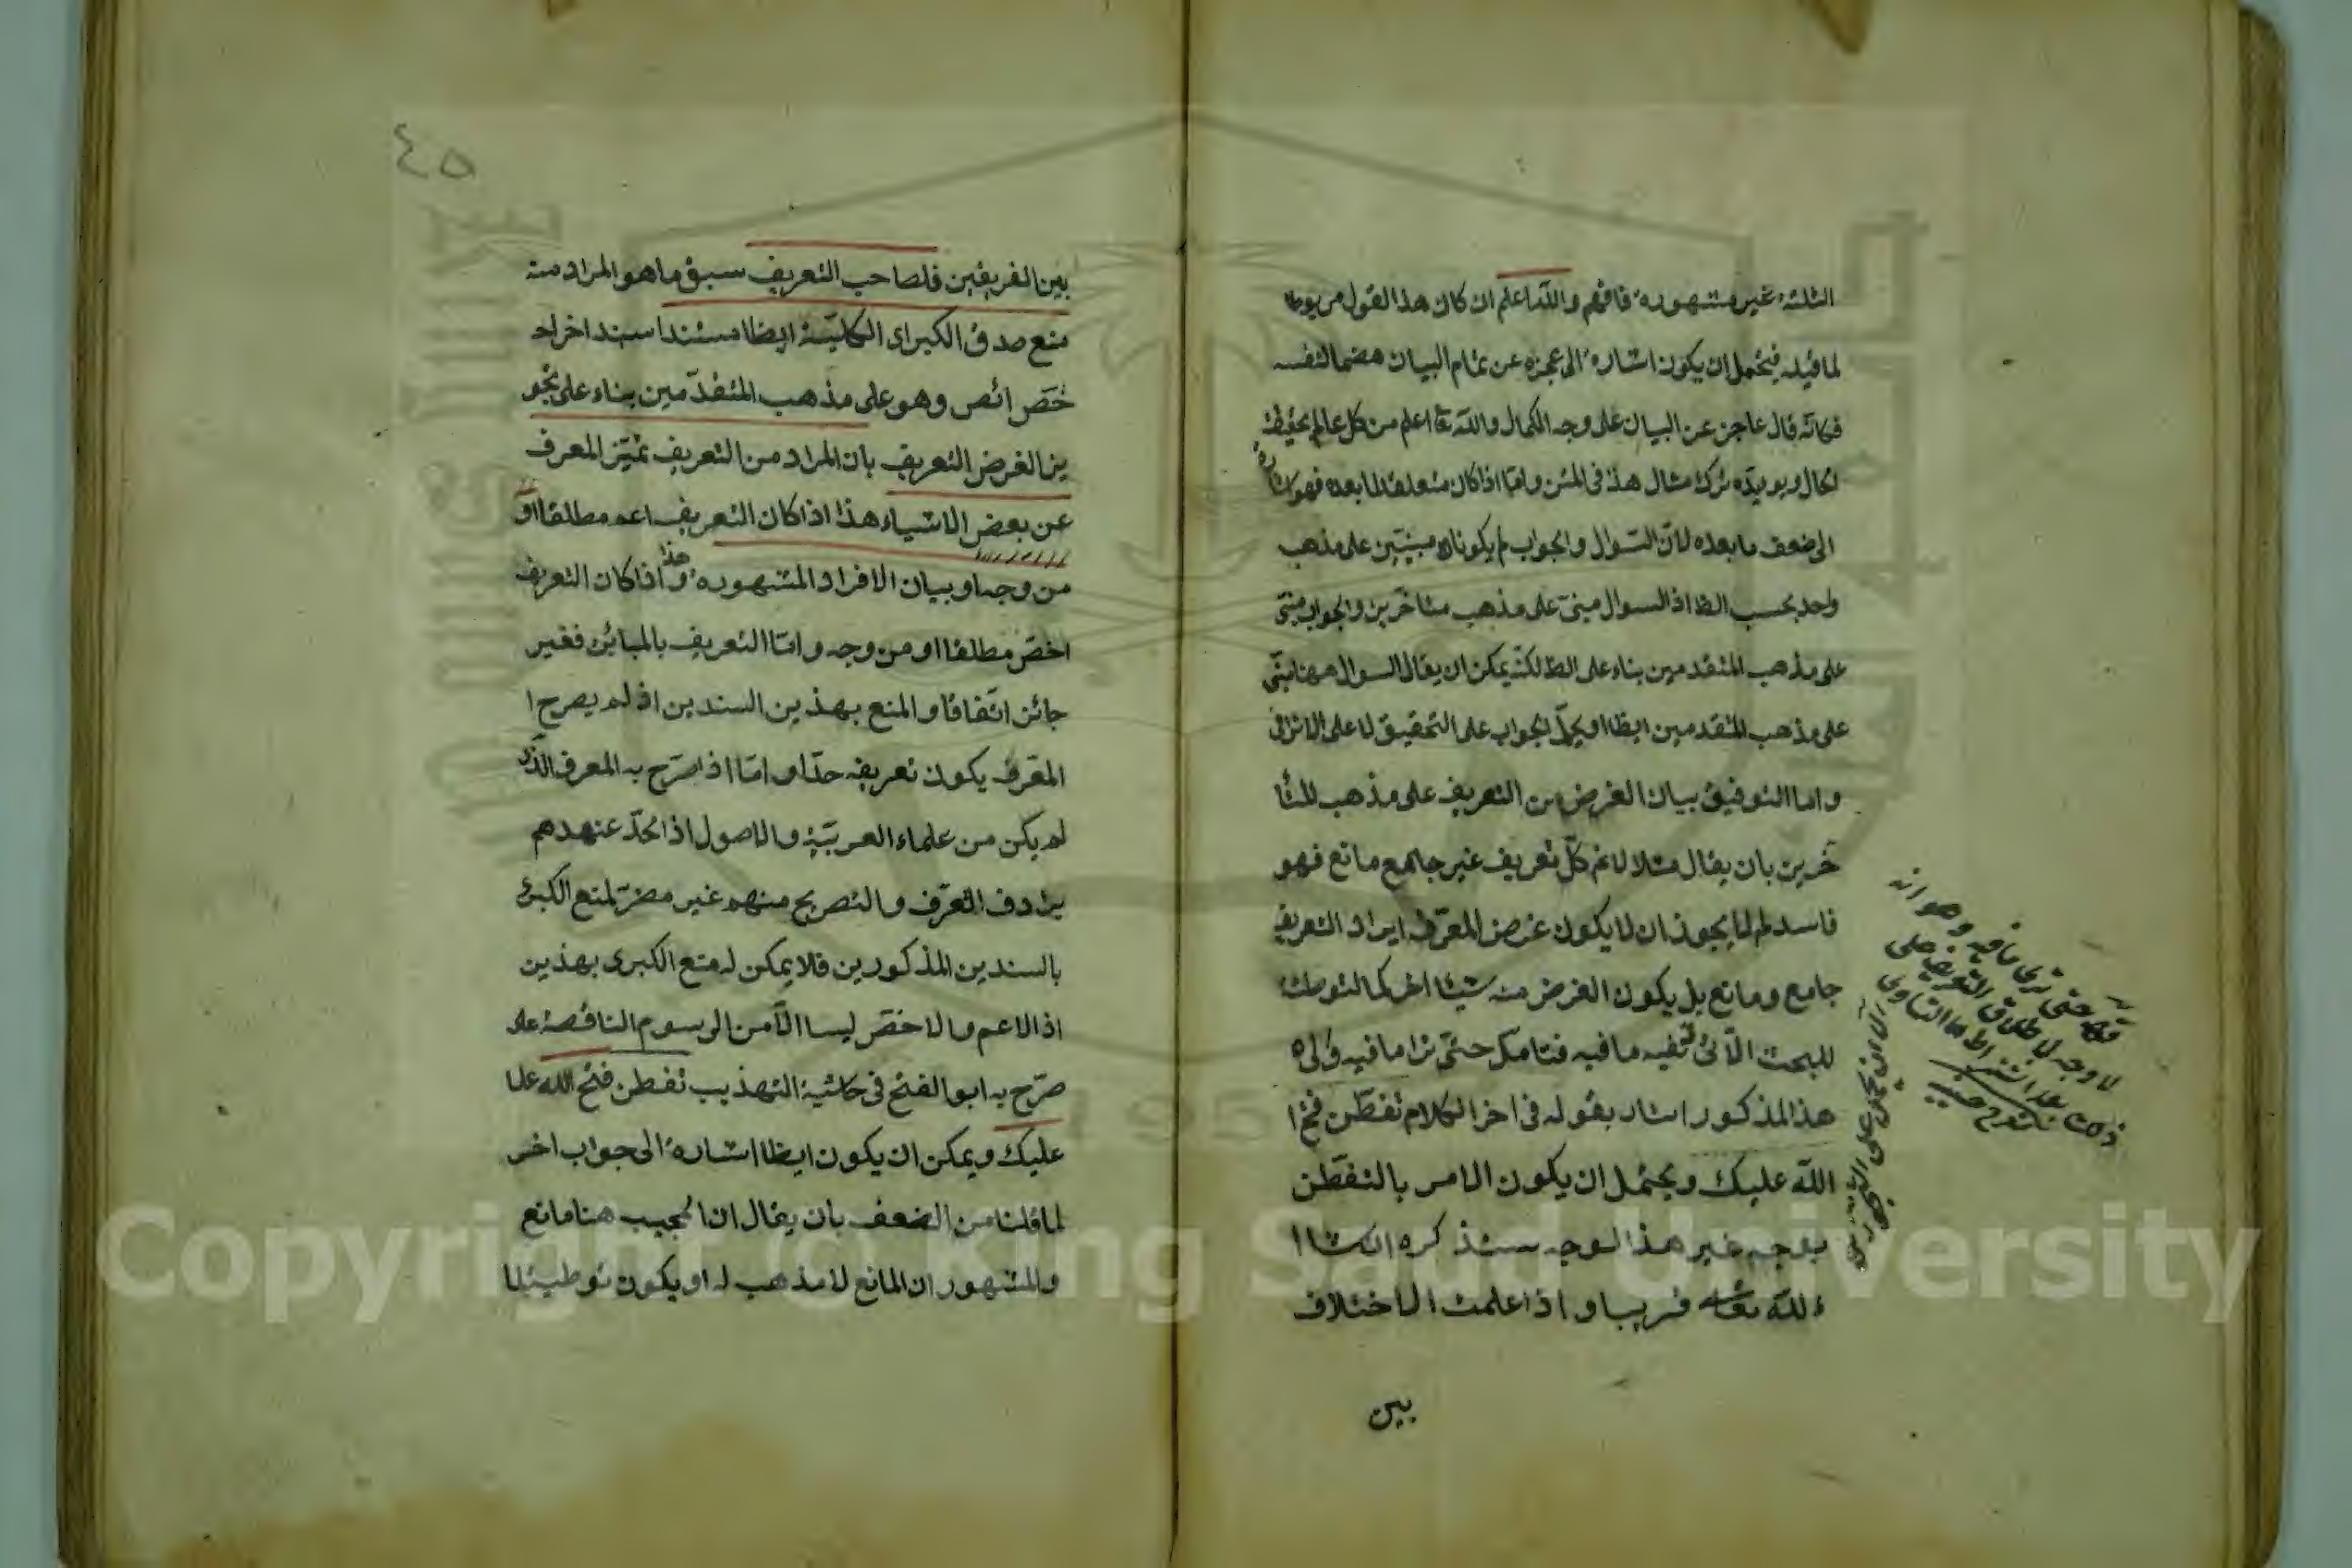 الثلثة غير مشهورة فافهم والله اعلم ان كان هذا القول مربوطا
لما قيله فيحتمل ان يكون اشارة الى عجزه عن تمام البيان هضما لنفسه
فكانه قال عاجز عن البيان على وجه الكمال والله تعا اعلم من كل عالم بحقيقة
الحال ويويده ترك مثال هذا في المتن واما اذا كان متعلقا لما بعده فهو اشارة
الى ضعف ما بعده لان السوال والجواب لم يكونا مبنيين على مذهب
واحد بحسب الظ اذ السوال مبنى على مذهب متاخرين والجواب مبنى
على مذهب المتقدمين بناء على الظ لكنه يمكن ان يقال السوال ههنا مبنى
على مذهب المتقدمين ايظا او يحمل الجواب على التحقيق لا على الالزامى
واما التوفيق بيان الغرض من التعريف على مذهب المتا
خرين بان يقال مثلا لانم كل تعريف غير جامع مانع فهو
فاسد لم لا يجوز ان لا يكون غرض المعرف ايراد التعريف
جامع ومانع بل يكون الغرض منه شيئا اخر كما لتوطئة
للبحث الآتى ففيه ما فيه فتامل حتى ترا ما فيه والى
هذا المذكور اشار بقوله فى اخر الكلام تفطن فتح ا
الله عليك ويحتمل ان يكون الامر بالتفطن
بوجه غير هذا الوجه سنذكره انشا ا
ء لله تعا قريبا واذا علمت الاختلاف
بين
٤٥
بين الفريقين فلصاحب التعريف سبق ما هو المراد منه
منع صدق الكبراى الكلية ايظا مستندا سند اخراه
خص ائص وهو على مذهب المتقدمين بناء على تجو
يز الغرض التعريف بان المراد من التعريف تميز المعرف
عن بعض الاشياء هذا اذا كان التعريف اعم مطلقا او
من وجه او بيان الافراد المشهورة وهذا اذا كان التعريف
اخص مطلقا او من وجه واما التعريف بالمبائن فغير
جائز اتفاقا والمنع بهذين السندين اذ لم يصرح ا
المعرف يكون تعريفه حدا واما اذا صرح به المعرف الذى
لم يكن من علماء العربية والاصول اذ الحد عندهم
يرادف المعرف والتصريح منهم غير مضر لمنع الكبرى
بالسندين المذكورين فلا يمكن له منع الكبرى بهذين
اذ الاعم والاخص ليسا الا من الرسوم الناقصة على
صرح به ابو الفتح فى حاشية التهذيب تفطن فتح الله علا
عليك ويمكن ان يكون ايظا اشارة الى جواب اخر
لما قلنا من الضعف بان يقال ان المجيب هنا مانع
والمشهور ان المانع لا مذهب له او يكون توطيئا
Copyright © King Saud University